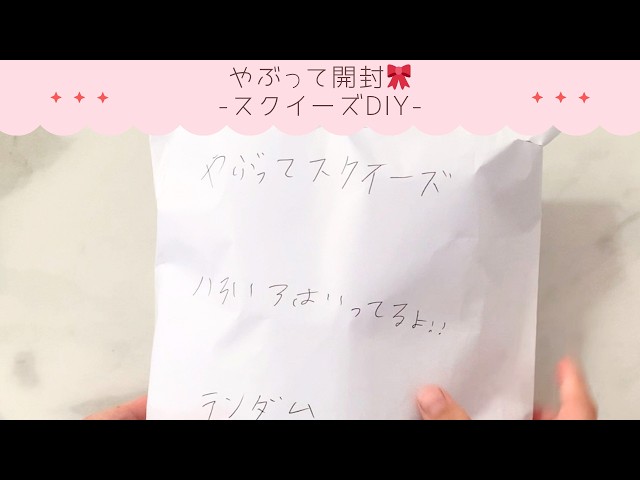 やぶって開封🎀
-スクイーズDIY-
やぶってスクイーズ
はいってるよ!!
ランダム